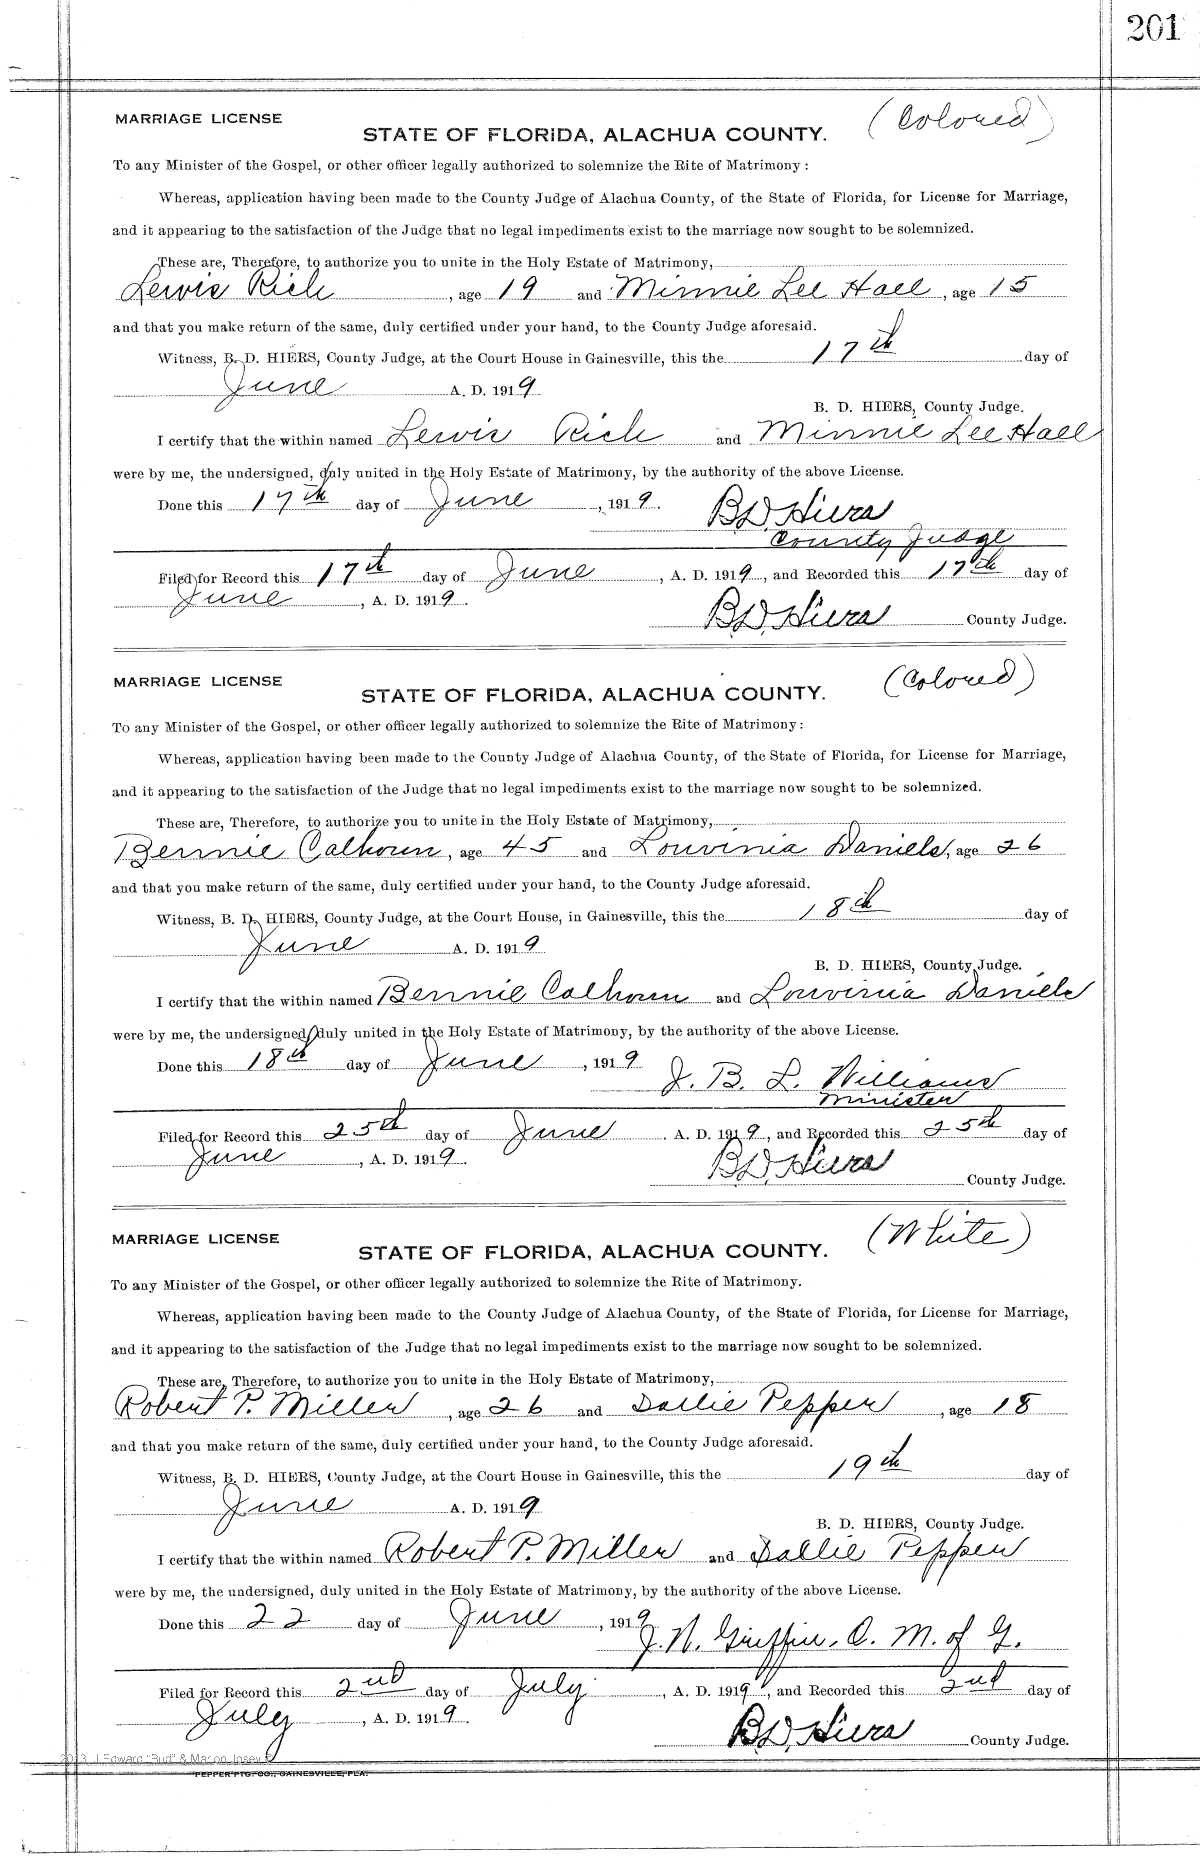 201
MARRIAGE LICENSE
(Colored)
STATE OF FLORIDA, ALACHUA COUNTY.
To any Minister of the Gospel, or other officer legally authorized to solemnize the Rite of Matrimony :
Whereas, application having been made to the County Judge of Alachua County, of the State of Florida, for License for Marriage,
and it appearing to the satisfaction of the Judge that no legal impediments exist to the marriage now sought to be solemnized.
These are, Therefore, to authorize you to unite in the Holy Estate of Matrimony,
Lewis Rich, age 19 and Minnie Lee Hall, age 15
and that you make return of the same, duly certified under your hand, to the County Judge aforesaid.
Witness, B. D. HIERS, County Judge, at the Court House in Gainesville, this the 17th day of
June A. D. 1919
B. D. HIERS, County Judge.
I certify that the within named Lewis Rich and Minnie Lee Hall
were by me, the undersigned, duly united in the Holy Estate of Matrimony, by the authority of the above License.
Done this 17th day of June, 1919.
B. D. Hiers
County Judge
Filed for Record this 17th day of June, A. D. 1919, and Recorded this 17th day of
June, A. D. 1919.
B. D. Hiers County Judge.
MARRIAGE LICENSE
(Colored)
STATE OF FLORIDA, ALACHUA COUNTY.
To any Minister of the Gospel, or other officer legally authorized to solemnize the Rite of Matrimony :
Whereas, application having been made to the County Judge of Alachua County, of the State of Florida, for License for Marriage,
and it appearing to the satisfaction of the Judge that no legal impediments exist to the marriage now sought to be solemnized.
These are, Therefore, to authorize you to unite in the Holy Estate of Matrimony,
Bennie Calhoun, age 45 and Louvinia Daniels, age 26
and that you make return of the same, duly certified under your hand, to the County Judge aforesaid.
Witness, B. D. HIERS, County Judge, at the Court House, in Gainesville, this the 18th day of
June A. D. 1919
B. D. HIERS, County Judge.
I certify that the within named Bennie Calhoun and Louvinia Daniels
were by me, the undersigned, duly united in the Holy Estate of Matrimony, by the authority of the above License.
Done this 18th day of June, 1919
J. B. L. Williams
Minister
Filed for Record this 25th day of June. A. D. 1919, and Recorded this 25th day of
June, A. D. 1919.
B. D. Hiers
County Judge.
MARRIAGE LICENSE
(White)
STATE OF FLORIDA, ALACHUA COUNTY.
To any Minister of the Gospel, or other officer legally authorized to solemnize the Rite of Matrimony.
Whereas, application having been made to the County Judge of Alachua County, of the State of Florida, for License for Marriage,
and it appearing to the satisfaction of the Judge that no legal impediments exist to the marriage now sought to be solemnized.
These are, Therefore, to authorize you to unite in the Holy Estate of Matrimony,
Robert P. Miller, age 26 and Dallie Pepper, age 18
and that you make return of the same, duly certified under your hand, to the County Judge aforesaid.
Witness, B. D. HIERS, County Judge, at the Court House in Gainesville, this the 19th day of
June A. D. 1919
B. D. HIERS, County Judge.
I certify that the within named Robert P. Miller and Dallie Pepper
were by me, the undersigned, duly united in the Holy Estate of Matrimony, by the authority of the above License.
Done this 22 day of June, 1919
J. N. Griffin. O. M. of G.
Filed for Record this 2nd day of July, A. D. 1919, and Recorded this 2nd day of
July, A. D. 1919.
B. D. Hiers County Judge.
J Edward "Bud" & Marion Josey
PEPPER PTG. CO., GAINESVILLE, FLA.